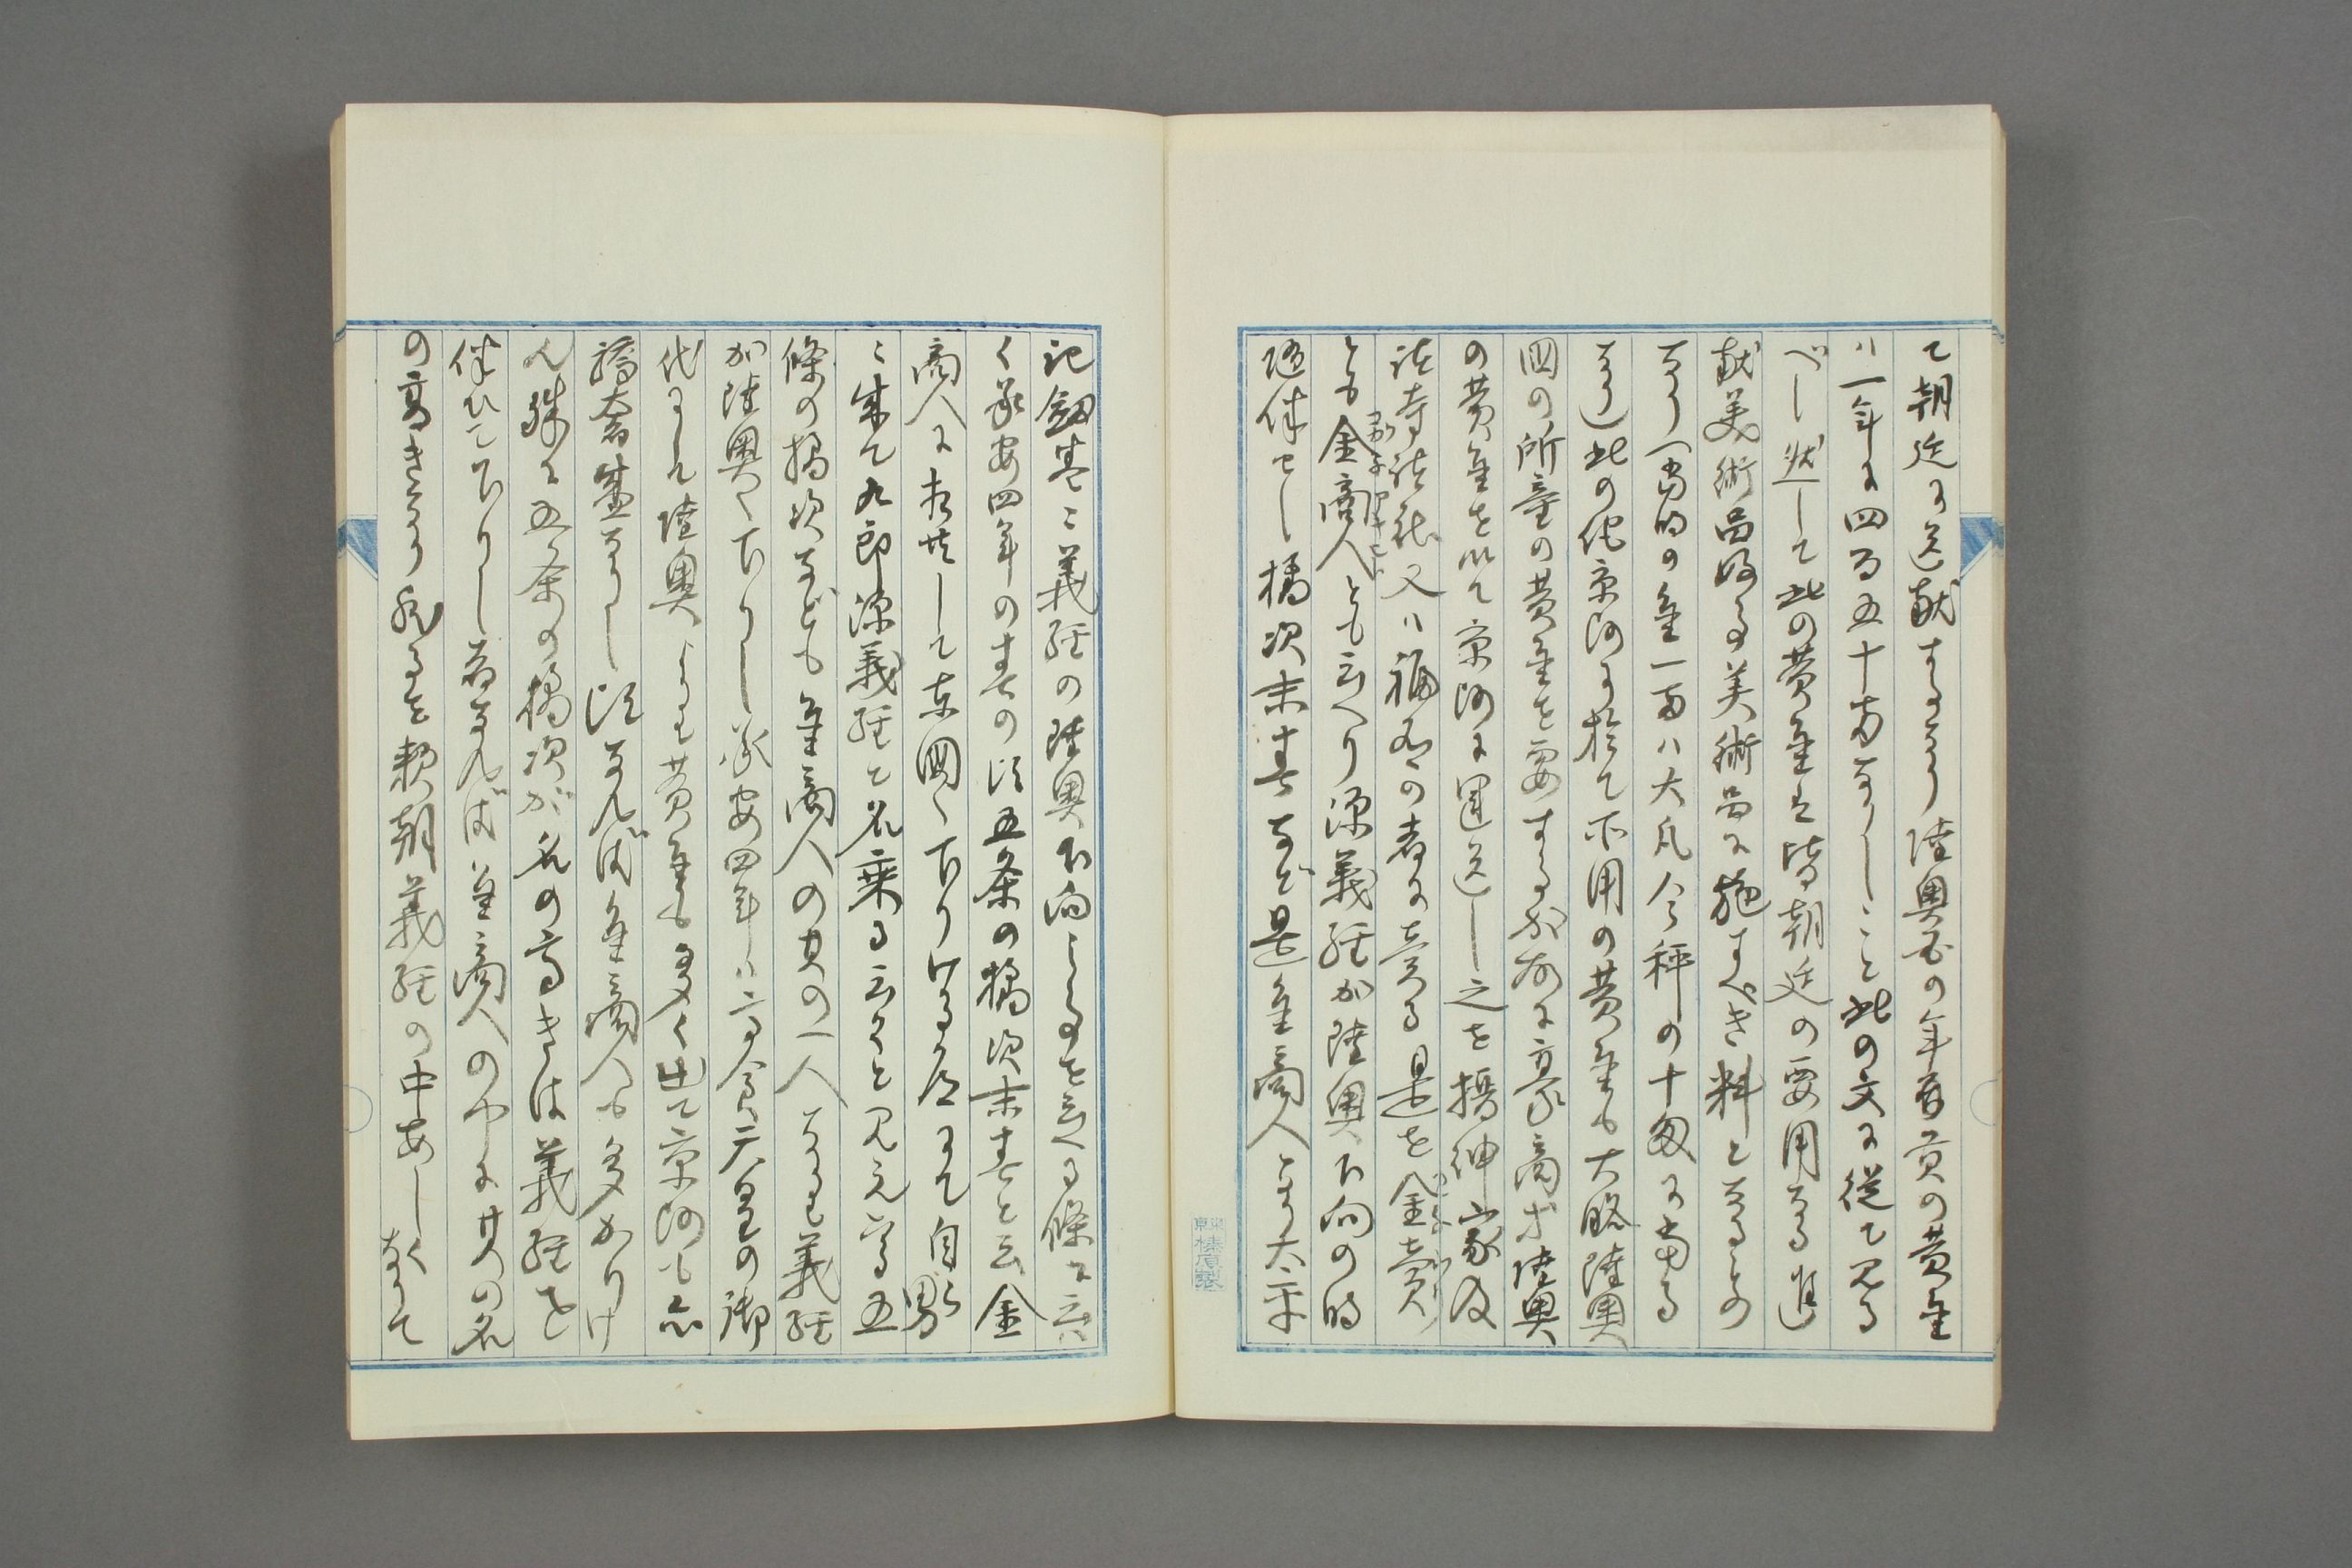 て朝廷に送献するなり陸奥国の年首貢の黄金
ハ一年に四百五十両なりしこと此の文に従て見る
べし然して此の黄金は皆朝廷の要用なる進
献美術品好る美術品に施すべき料となるもの
なり(当時の金一両ハ大凡今秤の十匁に当る
なり)此の他京師に於て所用の黄金も大略陸奥
国の所産の黄金を要するが故に豪商等陸奥
の黄金を以て京師に運送し之を搢紳家及
諸寺諸社又ハ福有の者に売る是を金売
とも金商人とも云へり源義経が陸奥下向の時
随伴せし橘次末春など是金商人なり太平
記剣巻に義経の陸奥下向しるを云へる條に云
く承安四年の春の頃五条の橘次末春と云金
商人に相共して東国へ下りける道にて自ら男
に成て九郎源義経と名乗る云々と見え当五
條の橘次なども金商人の其の一人なるも義経
が陸奥へ下りし承安四年ハ高倉天皇の御
代にして陸奥よりも黄金も多く出て京師も亦
驕奢盛なりし頃なれば金商人も多かりけ
ん殊に五条の橘次が名の高きは義経を
伴ひて下りし者なれば金商人のやうに其の名
の高きなり然るを頼朝義経の中あしくなりて